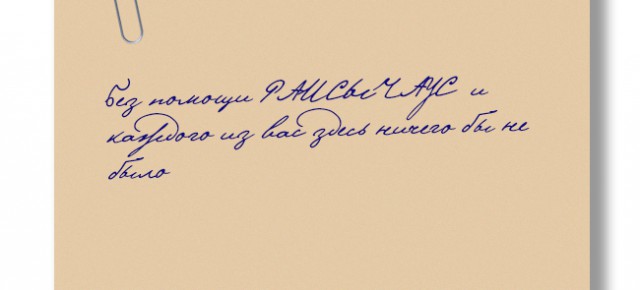 Без помощи РАИСЫ ЧАУС и
каждого из вас здесь ничего бы не
было